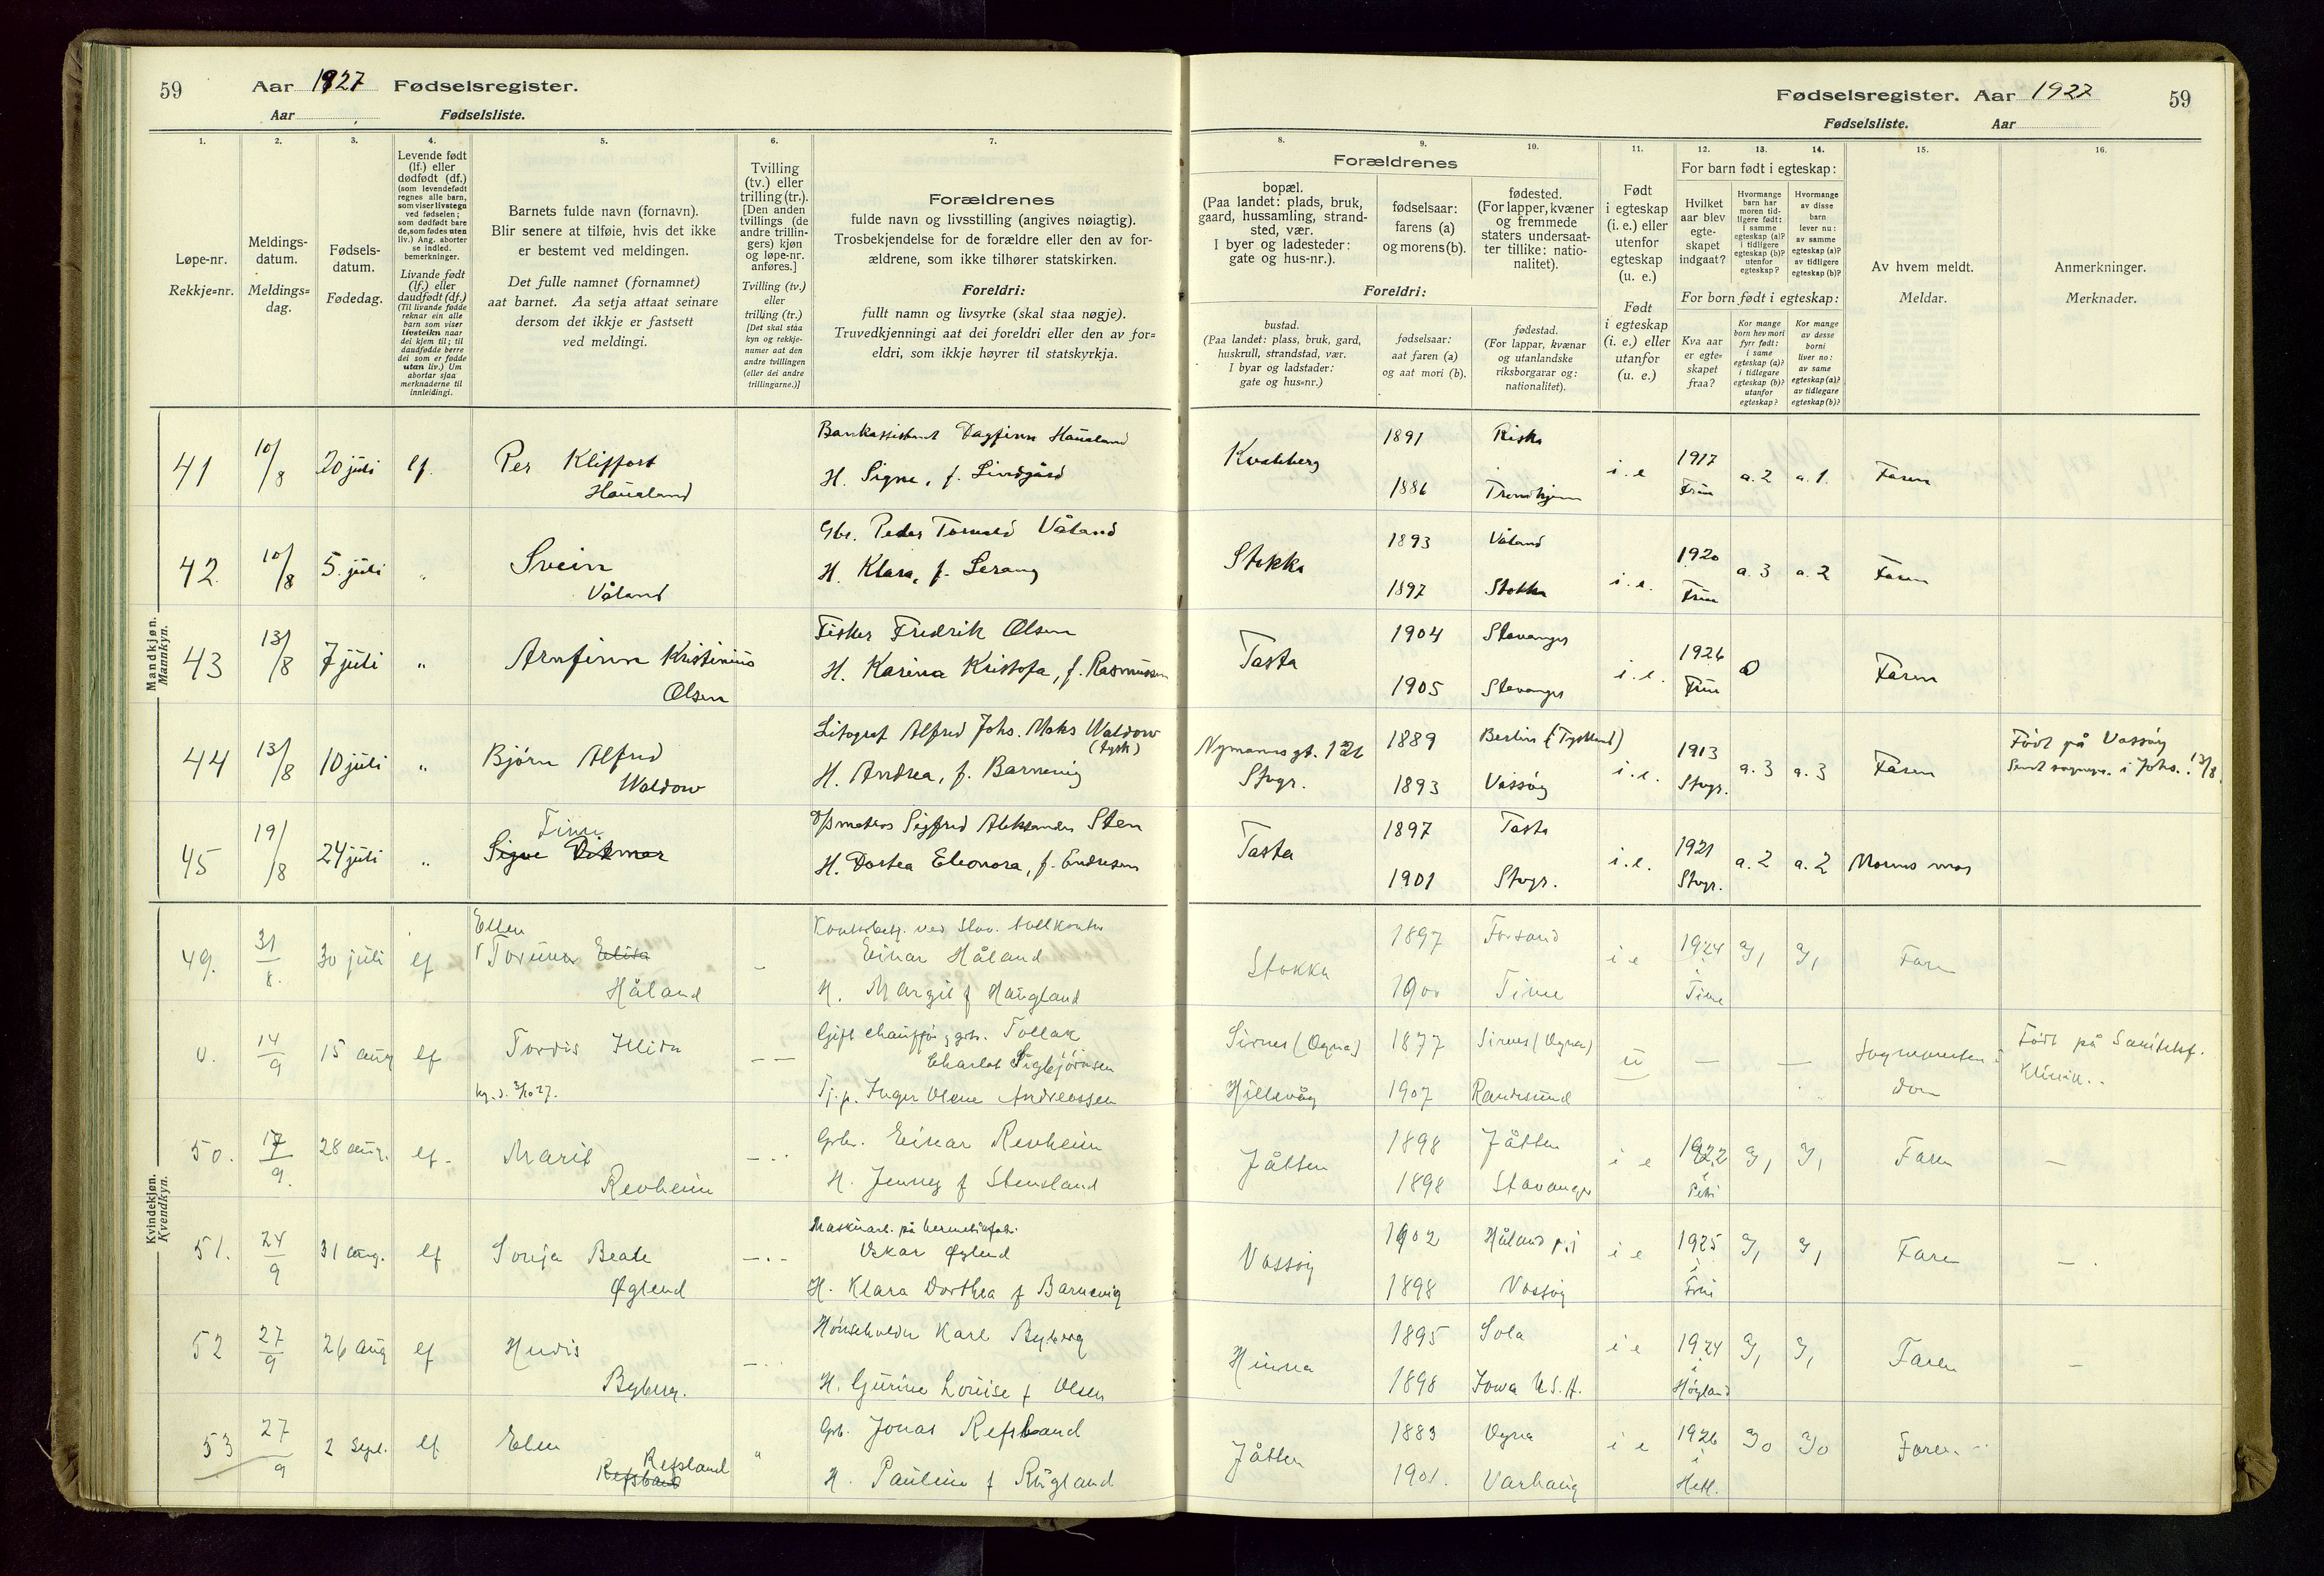 59 Aar 1927 Fødselsregister.
Aar Fødselsliste.
Fødselsregister. Aar 1927 59
Fødselsliste. Aar
1.
Løpe-nr.
Rekkje=nr.
2.
Meldings-
datum.
Meldings=
dag.
3.
Fødsels-
datum.
Fødedag.
4.
Levende født
(lf.) eller
dødfødt (df.)
(som levendefødt
regnes alle barn,
som viser livstegn
ved fødselen;
som dødfødt bare
de, som fødes uten
liv.) Ang. aborter
se indled.
bemerkninger.
Livande født
(lf.) eller
daudfødt (df.)
(Til livande fødde
reknar ein alle
barn som viser
livsteikn naar
dei kjem til; til
daudfødde berre
dei som er fødde
utan liv.) Um
abortar sjaa
merknaderne til
innleidingi.
5.
Barnets fulde navn (fornavn).
Blir senere at tilføie, hvis det ikke
er bestemt ved meldingen.
Det fulle namnet (fornamnet)
aat barnet. Aa setja attaat seinare
dersom det ikkje er fastsett
ved meldingi.
6.
Tvilling
(tv.) eller
trilling (tr.).
[Den anden
tvillings (de
andre trillin-
gers) kjøn
og løpe-nr.
anføres.]
Tvilling (tv.)
eller
trilling (tr.)
[Det skal staa
kyn og rekkje-
numer aat den
andre tvillingen
(eller dei andre
trillingarne.)]
7.
Forældrenes
fulde navn og livsstilling (angives nøiagtig).
Trosbekjendelse for de forældre eller den av for-
ældrene, som ikke tilhører statskirken.
Foreldri:
fullt namn og livsyrke (skal staa nøgje).
Truvedkjenningi aat dei foreldri eller den av for=
eldri, som ikkje høyrer til statskyrkja.
8.
Forældrenes
bopæl.
(Paa landet: plads, bruk,
gaard, hussamling, strand-
sted, vær.
I byer og ladesteder:
gate og hus-nr.).
Foreldri:
bustad.
(Paa landet: plass, bruk, gard,
huskrull, strandstad, vær.
I byar og ladstader:
gate og hus=nr.)
9.
fødselsaar:
farens (a)
og morens (b).
fødselsaar:
aat faren (a)
og aat mori (b).
10.
fødested.
(For lapper, kvæner
og fremmede
staters undersaat-
ter tillike: natio-
nalitet).
fødestad.
(For lappar, kvænar
og utanlandske
riksborgarar og:
nationalitet).
11.
Født
i egteskap
(i. e.) eller
utenfor
egteskap
(u. e.)
Født
i egteskap
(i. e.) eller
utanfor
(u. e.)
12. 13. 14.
For barn født i egteskap:
Hvilket
aar blev
egte-
skapet
indgaat?
Hvormange
barn har
moren tid-
ligere født:
i samme
egteskap (a)?
i tidligere
egteskap (b)?
utenfor
egteskap?
Hvormange
av disse
barn
lever nu:
av samme
egteskap (a)?
av tidligere
egteskap (b)?
For born født i egteskap:
Kva aar
er egte-
skapet
fraa?
Kor mange
born hev mori
fyrr født:
i same
egteskap (a)?
i tidlegare
egteskap (b)?
utanfor
egteskap?
Kor mange
av desse
borni
liver no:
av same
egteskap (a)?
av tidlegare
egteskap (b)?
15.
Av hvem meldt.
Meldar.
16.
Anmerkninger.
Merknader.
Mandkjøn.
Mannkyn.
41 10/8 20 juli lf. Per Kliffort
Haualand
Bankassistent Dagfinn Haualand
H. Signe, f. Lindgård
Kvaleberg
1891 Riska
1886 Trondhjem
i. e 1917 a. 2 a. 1. Faren
Frue
42. 10/8 5. juli " Svein
Våland
Gbr. Peder Torvald Våland
H. Klara, f. Lerang
Stokka
1893 Våland
1897 Stokka
i. e. 1920 a. 3 a. 2 Faren
Frue
43 13/8 7 juli " Arnfinn Kristinius
Olsen
Fisker Fredrik Olsen
H. Karina Kristofa, f. Rasmussen
Tasta
1904 Stavanger
1905 Stavanger
i. e. 1926 0 Faren
Frue
44 13/8 10 juli " Bjørn Alfred
Waldow
Litograf Alfred Johs. Maks Waldow
(tysk)
H. Andrea, f. Barnevig
Nymannsgt. 121
Stvgr.
1889 Berlin (Tyskland)
1893 Vassøy
i. e. 1913 a. 3 a. 3 Faren
Stvgr.
Født på Vassøy
i Johs. 13/8.
45 19/8 24 juli " Signe
D/S matros Sigfred Aleksander Sten
H. Dortea Eleonora, f. Endresen
Tasta
1897 Tasta
1901 Stvgr.
i. e. 1921 a. 2 a. 2 Morens mor
Stvgr.
Kvindekjøn.
Kvendkyn.
49. 31/8. 30 juli lf Ellen
Torunn
Håland
ved Stav. tollkontor
Einar Håland
H. Margit f Haugland
Stokka
1897 Forsand
1900 Time
i e 1924 Faren
i
Time
14/9 15 aug lf Tordis
Gift chauffør, grb. Tollak
Charles Sigbjørnsen
Tj.p. Inger Olene Andreassen
Sirnes (Ogna)
Hillevåg
1877 Sirnes (Ogna)
1907 Randesund
u — —
Født på Sanitetsf.
Klinik.
50. 17/9. 28 aug. lf. Marit
Revheim
Grbr. Einar Revheim
H. Jenny f Stensland
Jåtten
1898 Jåtten
1898 Stavanger
i e 1922 Faren —
i
Petri
51. 24/9 31 aug. lf Sonja Beate
Øglend
Maskinarb. på hermetikfabr.
Oskar Øglend
H. Klara Dorthea f Barnevig
Vassøy
1902 Håland p.j
1898 Vassøy
i e 1925 Faren —
i
Frue
52 27/9 26 aug lf Herdis
Byberg.
Hønseholder Karl Byberg
H. Gurine Louise f Olsen
Hinna
1895 Sola
1898 Iowa U.S.A.
i e 1924 Faren —
i
Høyland
53 27/9 2 Sept. lf Elen
Refsland
Grb. Jonas Refsland
H. Pauline f Rugland
Jåtten
1883 Ogna
1901. Varhaug
i e 1926 Faren
i
Hetl.